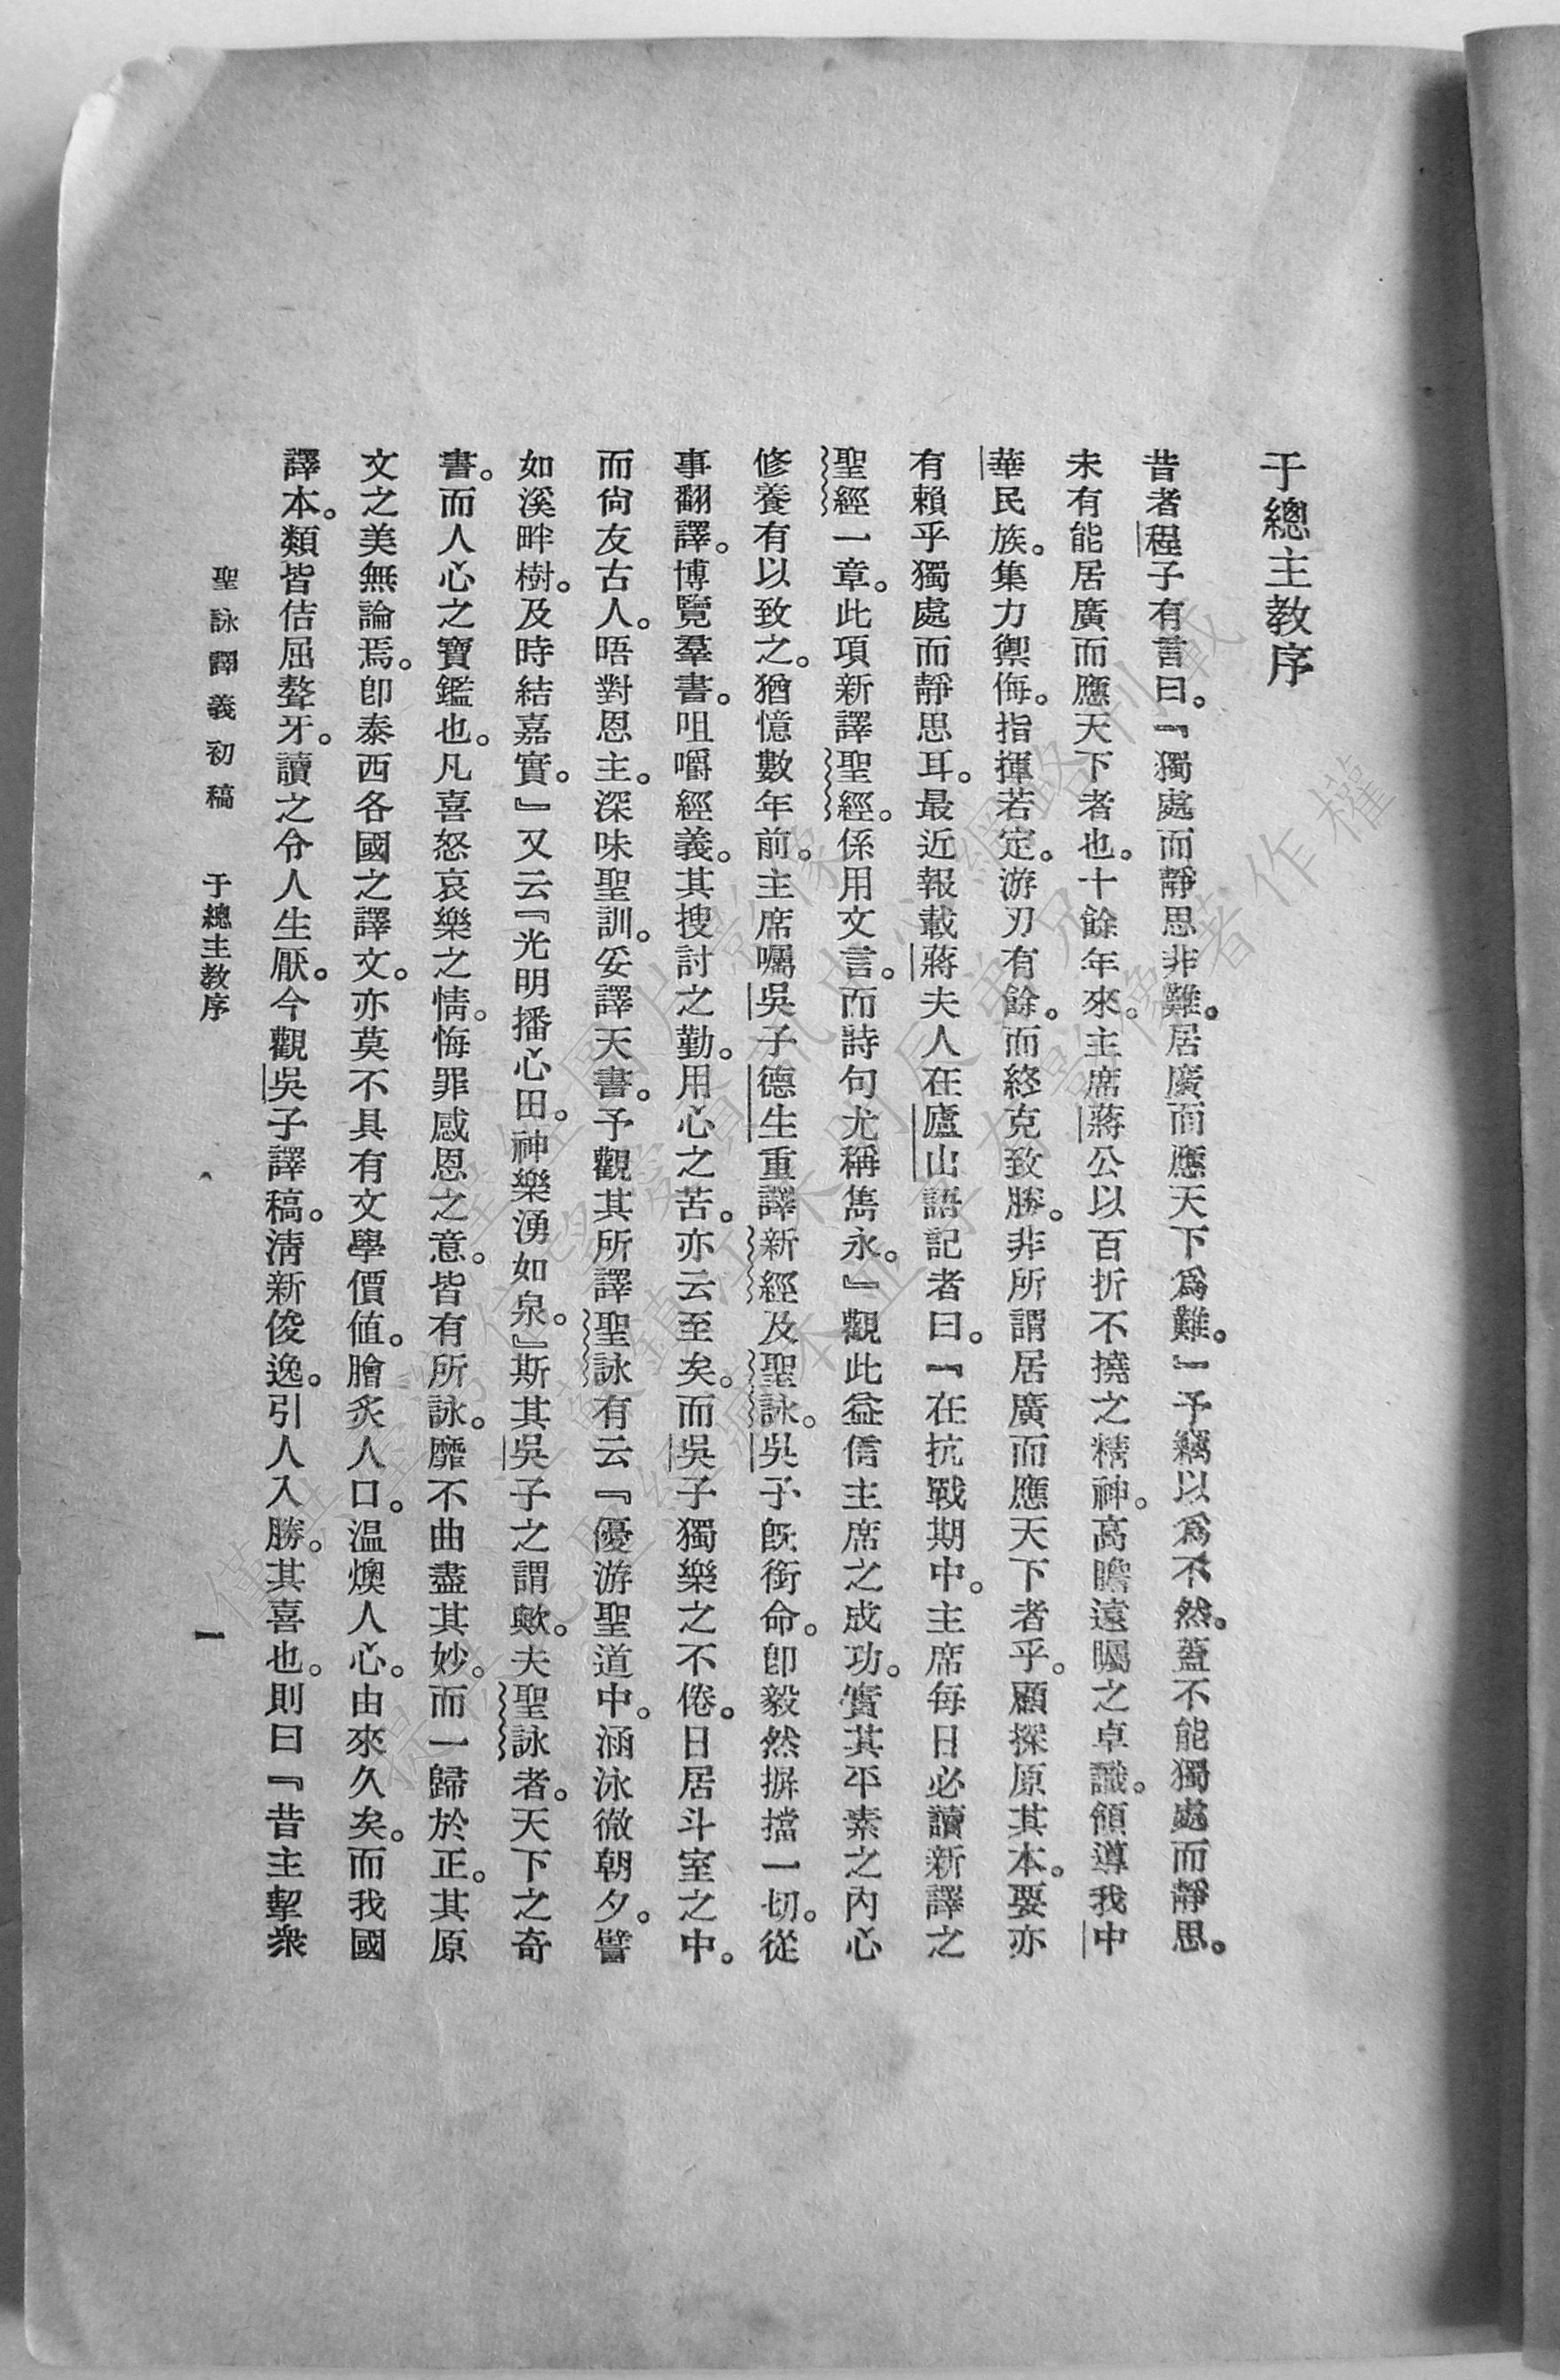 于總主教序
昔者程子有言曰。『獨處而靜思非難。居廣而應天下爲難。』予竊以爲不然。蓋不能獨處而靜思。
未有能居廣而應天下者也。十餘年來。主席蔣公以百折不撓之精神。高瞻遠矚之卓識。領導我中
華民族。集力禦侮。指揮若定。游刃有餘。而終克致勝。非所謂居廣而應天下者乎。顧探原其本。要亦
有賴乎獨處而靜思耳。最近報載蔣夫人在廬山語記者曰。『在抗戰期中。主席每日必讀新譯之
聖經一章。此項新譯聖經。係用文言。而詩句尤稱雋永。』觀此益信主席之成功。實其平素之內心
修養有以致之。猶憶數年前。主席囑吳子德生重譯新經及聖詠。吳子旣銜命。卽毅然摒擋一切。從
事翻譯。博覽羣書。咀嚼經義。其搜討之勤。用心之苦。亦云至矣。而吳子獨樂之不倦。日居斗室之中。
而尙友古人。晤對恩主。深味聖訓。妥譯天書。予觀其所譯聖詠有云『優游聖道中。涵泳徹朝夕。譬
如溪畔樹。及時結嘉實。』又云『光明播心田。神樂湧如泉。』斯其吳子之謂歟。夫聖詠者。天下之奇
書。而人心之寶鑑也。凡喜怒哀樂之情。悔罪感恩之意。皆有所詠。靡不曲盡其妙。而一歸於正。其原
文之美無論焉。卽泰西各國之譯文。亦莫不具有文學價值。膾炙人口。溫燠人心。由來久矣。而我國
譯本。類皆佶屈聱牙。讀之令人生厭。今觀吳子譯稿。淸新俊逸。引人入勝。其喜也。則曰『昔主挈衆
聖詠譯義初稿　于總主教序　一